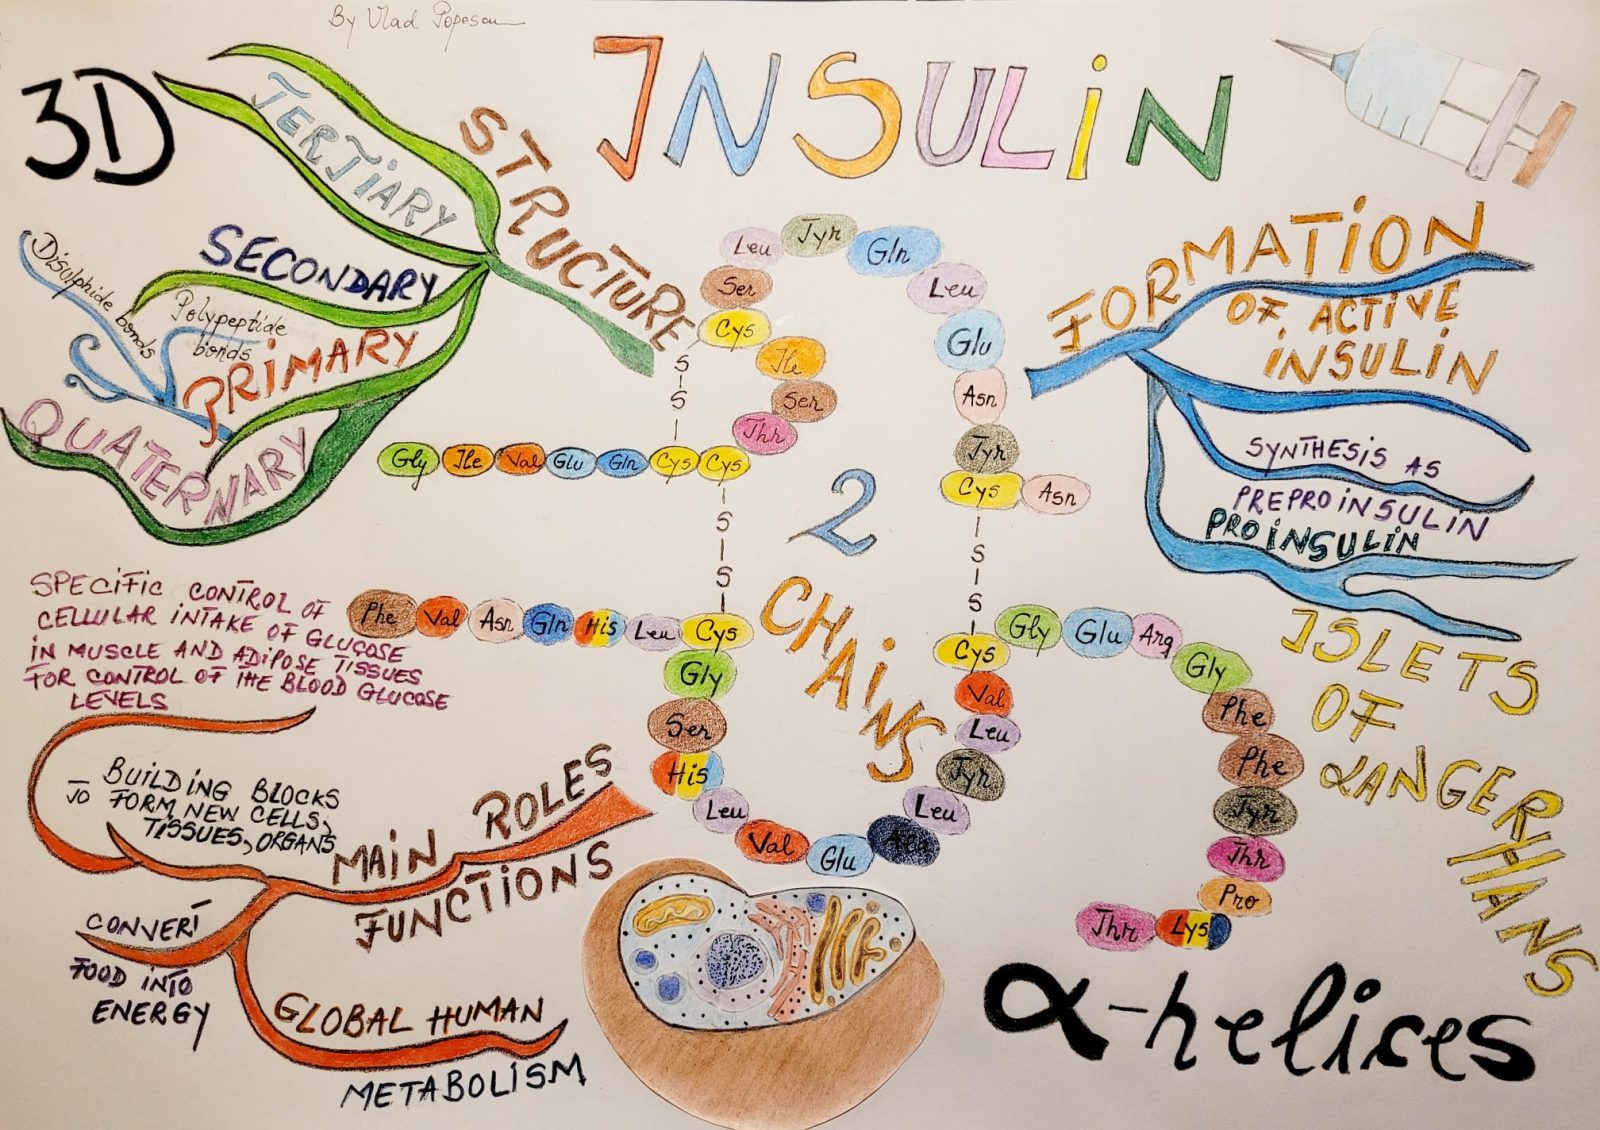 By Vlad Popescu
INSULIN
3D
STRUCTURE
TERTIARY
SECONDARY
Disulphide bonds
Polypeptide
bonds
PRIMARY
QUATERNARY
FORMATION
OF ACTIVE
INSULIN
SYNTHESIS AS
PREPROINSULIN
PROINSULIN
ISLETS
OF
LANGERHANS
Gly Ile Val Glu Gln Cys Cys
Thr
Ser
Ile
Cys
Ser
Leu
Tyr
Gln
Leu
Glu
Asn
Tyr
Cys Asn
S
S
S
S
S
S
2
CHAINS
Phe Val Asn Gln His Leu Cys
Gly
Ser
His
Leu
Val
Glu
Ala
Leu
Tyr
Leu
Val
Cys
Gly Glu Arg Gly
Phe
Phe
Tyr
Thr
Pro
Lys
Thr
SPECIFIC CONTROL OF
CELLULAR INTAKE OF GLUCOSE
IN MUSCLE AND ADIPOSE TISSUES
FOR CONTROL OF THE BLOOD GLUCOSE
LEVELS
BUILDING BLOCKS
TO FORM NEW CELLS,
TISSUES, ORGANS
MAIN ROLES
FUNCTIONS
CONVERT
FOOD INTO
ENERGY
GLOBAL HUMAN
METABOLISM
α-helices